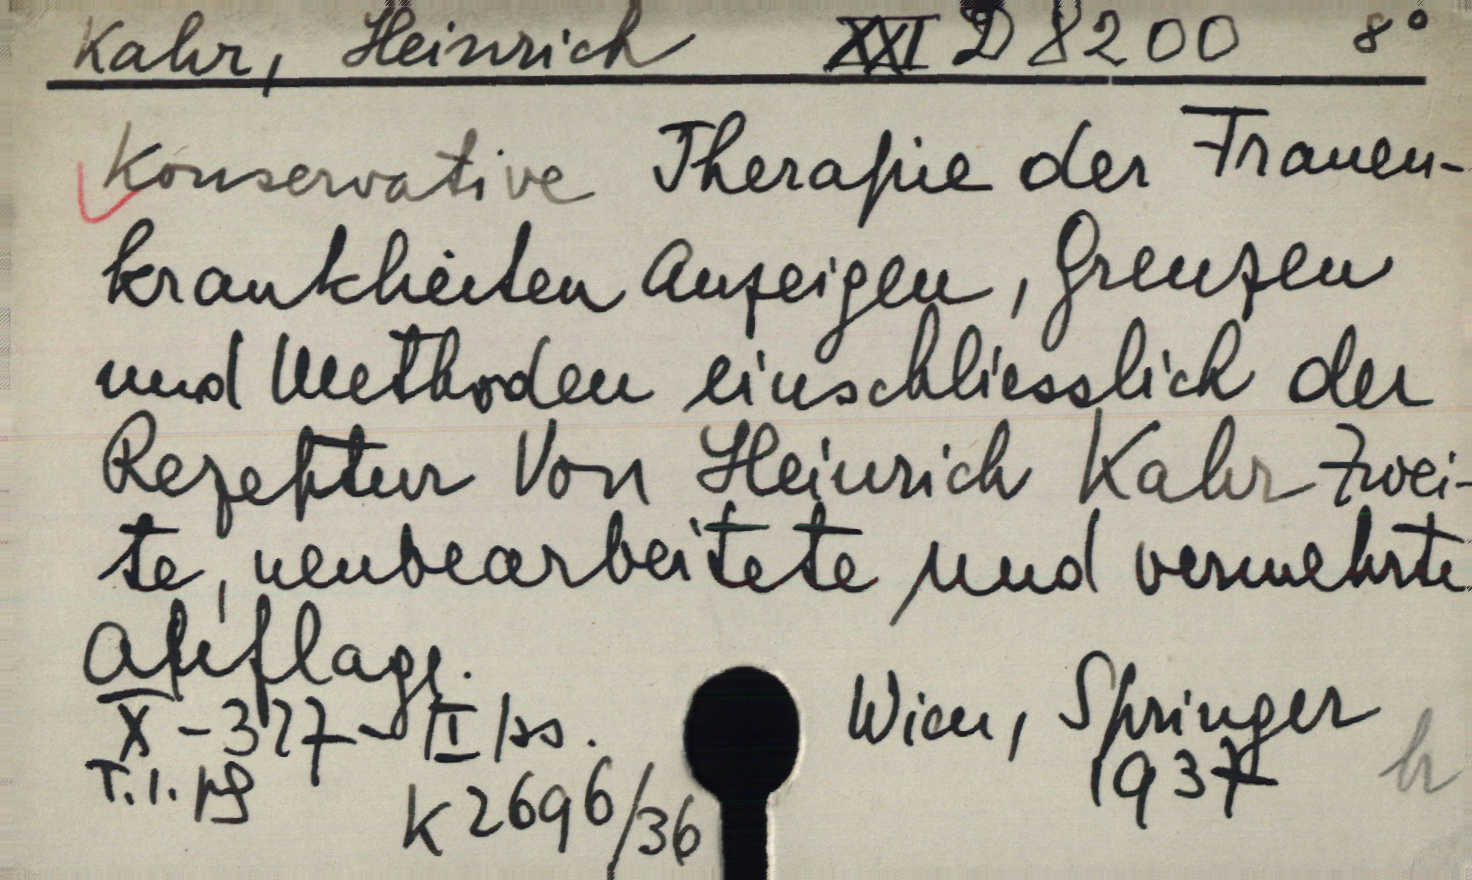 Kahr, Heinrich XXI D 8200 8°
Konservative Therapie der Frauen-
krankheiten Anzeigen, Grenzen
und Methoden einschliesslich der
Rezeptur Von Heinrich Kahr Zwei-
te, neubearbeitete und vermehrte
Auflage.
Wien, Springer
X - 327 - II /ss.
1937
T. 1. pg
K 2696/36